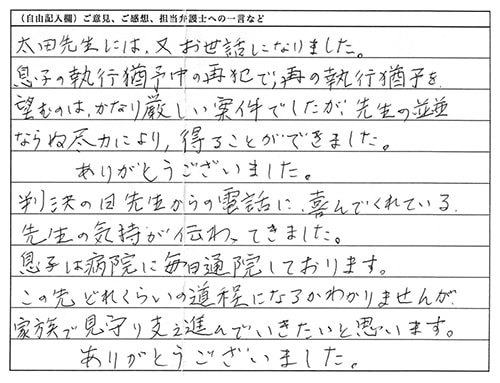 （自由記入欄）ご意見、ご感想、担当弁護士への一言など
太田先生には、又お世話になりました。
息子の執行猶予中の再犯で、再の執行猶予を
望むのは、かなり厳しい案件でしたが、先生の並並
ならぬ尽力により、得ることができました。
ありがとうございました。
判決の日先生からの電話に、喜んでくれている
先生の気持が伝わってきました。
息子は病院に毎日通院しております。
この先どれくらいの道程になるかわかりませんが
家族で見守り支え進んでいきたいと思います。
ありがとうございました。